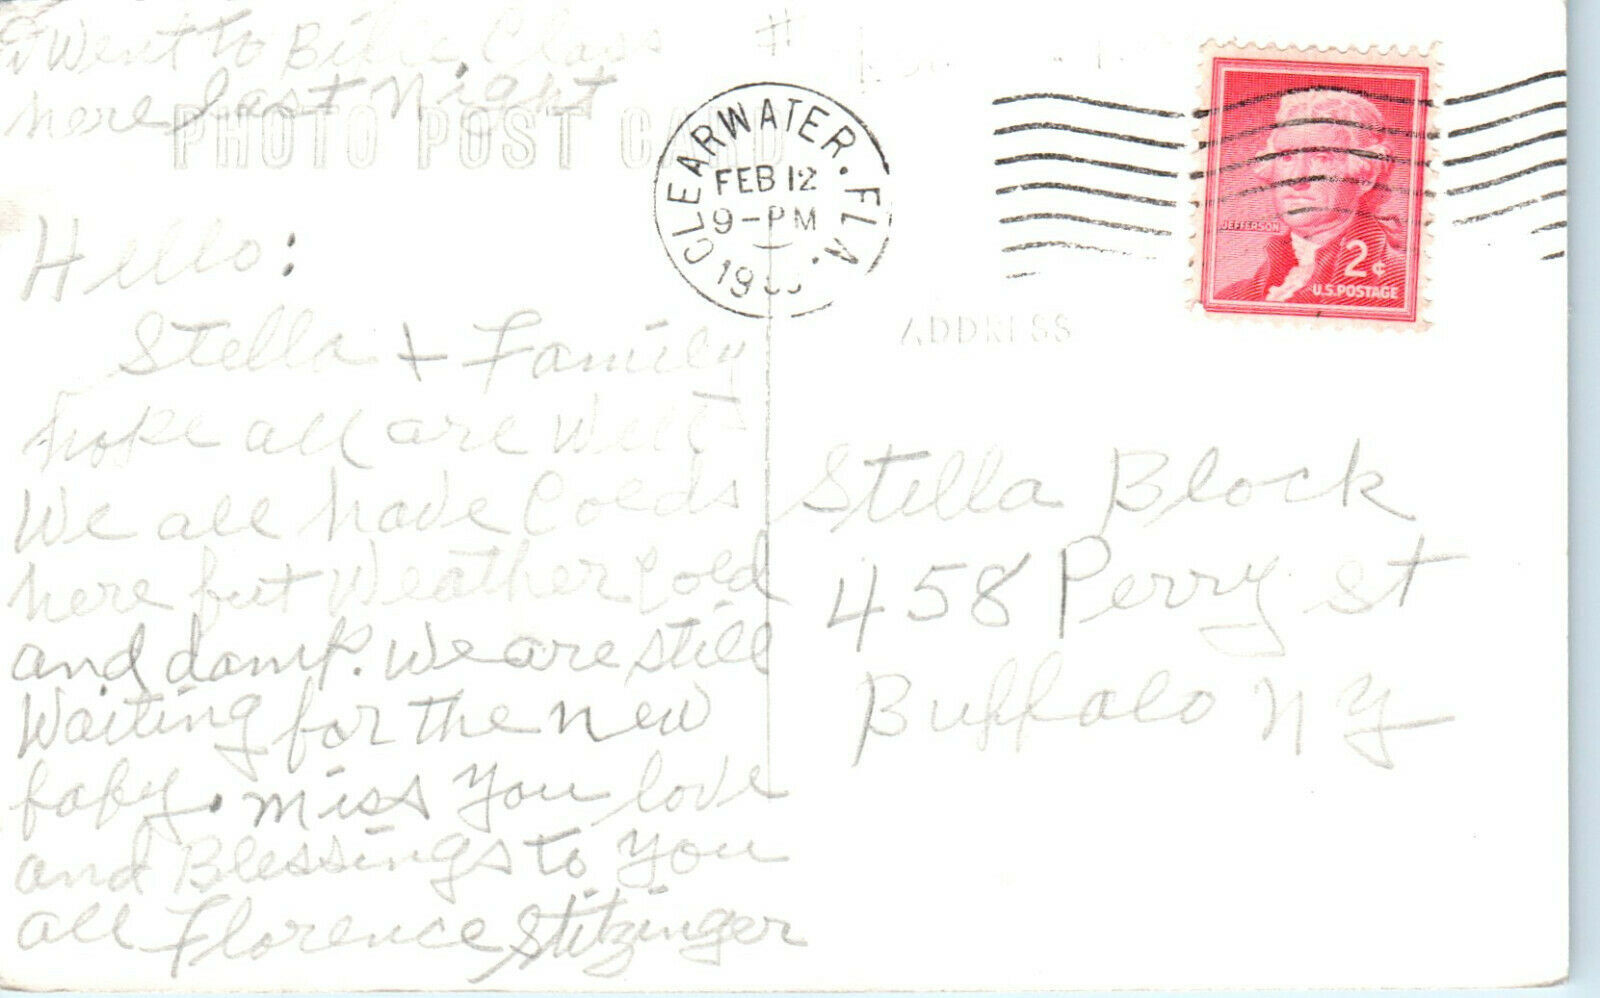 I Went to Bible Class
here last Night
PHOTO POST CARD
Hello:
Stella + Family
hope all are well
We all have Colds
here but Weather Cold
and damp. We are still
Waiting for the new
baby. Miss You love
and Blessings to You
all Florence Stitzinger
CLEARWATER. FLA.
FEB 12
9-PM
JEFFERSON
2¢
U.S. POSTAGE
ADDRESS
Stella Block
458 Perry St
Buffalo NY